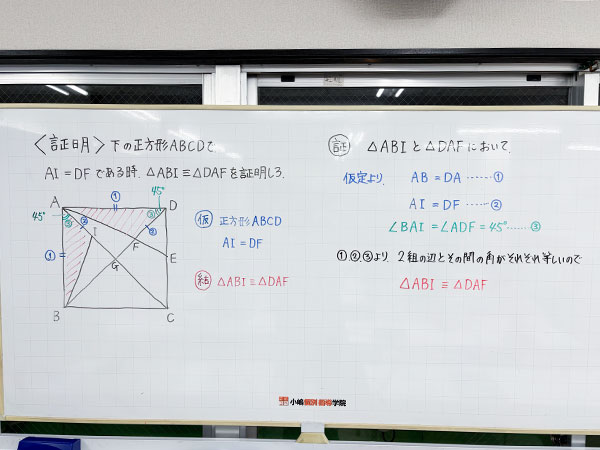 〈証明〉下の正方形ABCDで
AI=DFである時、△ABI≡△DAFを証明しろ。
A
①
45°
D
45°
③
②
③
I
②
F
①
G
E
B
C
仮 正方形ABCD
AI=DF
結 △ABI≡△DAF
証 △ABIと△DAFにおいて
仮定より、 AB=DA……①
AI=DF……②
∠BAI=∠ADF=45°……③
①②③より 2組の辺とその間の角がそれぞれ等しいので
△ABI≡△DAF
小嶋個別指導学院